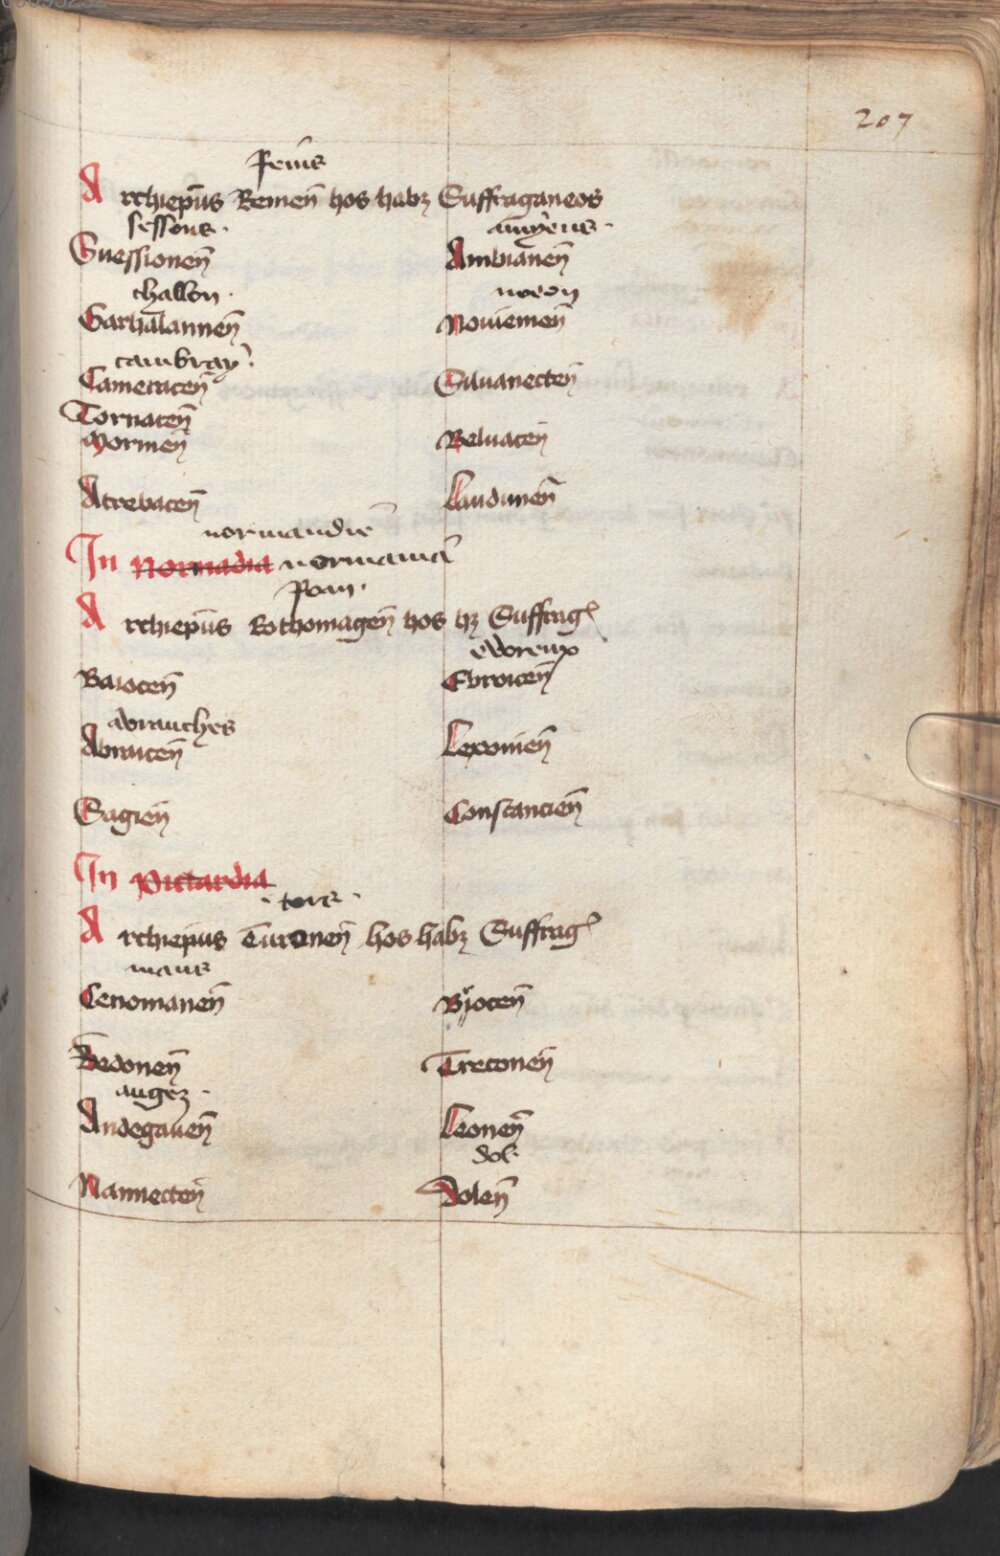 207
Remis
Archiep̄us Remen̄ hos habꝫ Suffraganeos
sessons · amyens ·
Suessionen̄ Ambianen̄
challon · noeon
Gathalannen̄ Nouiemen̄
cambray ·
Cameracen̄ Siluanecten̄
Tornacen̄
Mormen̄ Beluacen̄
Atrebacen̄ Laudunen̄
normandie
In Normadia normania
Roan ·
Archiep̄us Rothomagen̄ hos hꝫ Suffrag
evoreux
Baiocen̄ Ebroicen̄
abranches
Abrincen̄ Lexouien̄
Sagien̄ Constancien̄
In Pictardia
· tors ·
Archiep̄us Turonen̄ hos habꝫ Suffrag
mans
Cenomanen̄ Brjocen̄
Redonen̄ Treconen̄
angeꝫ ·
Andegauen̄ Leonen̄
dol·
Nannecten̄ Dolen̄